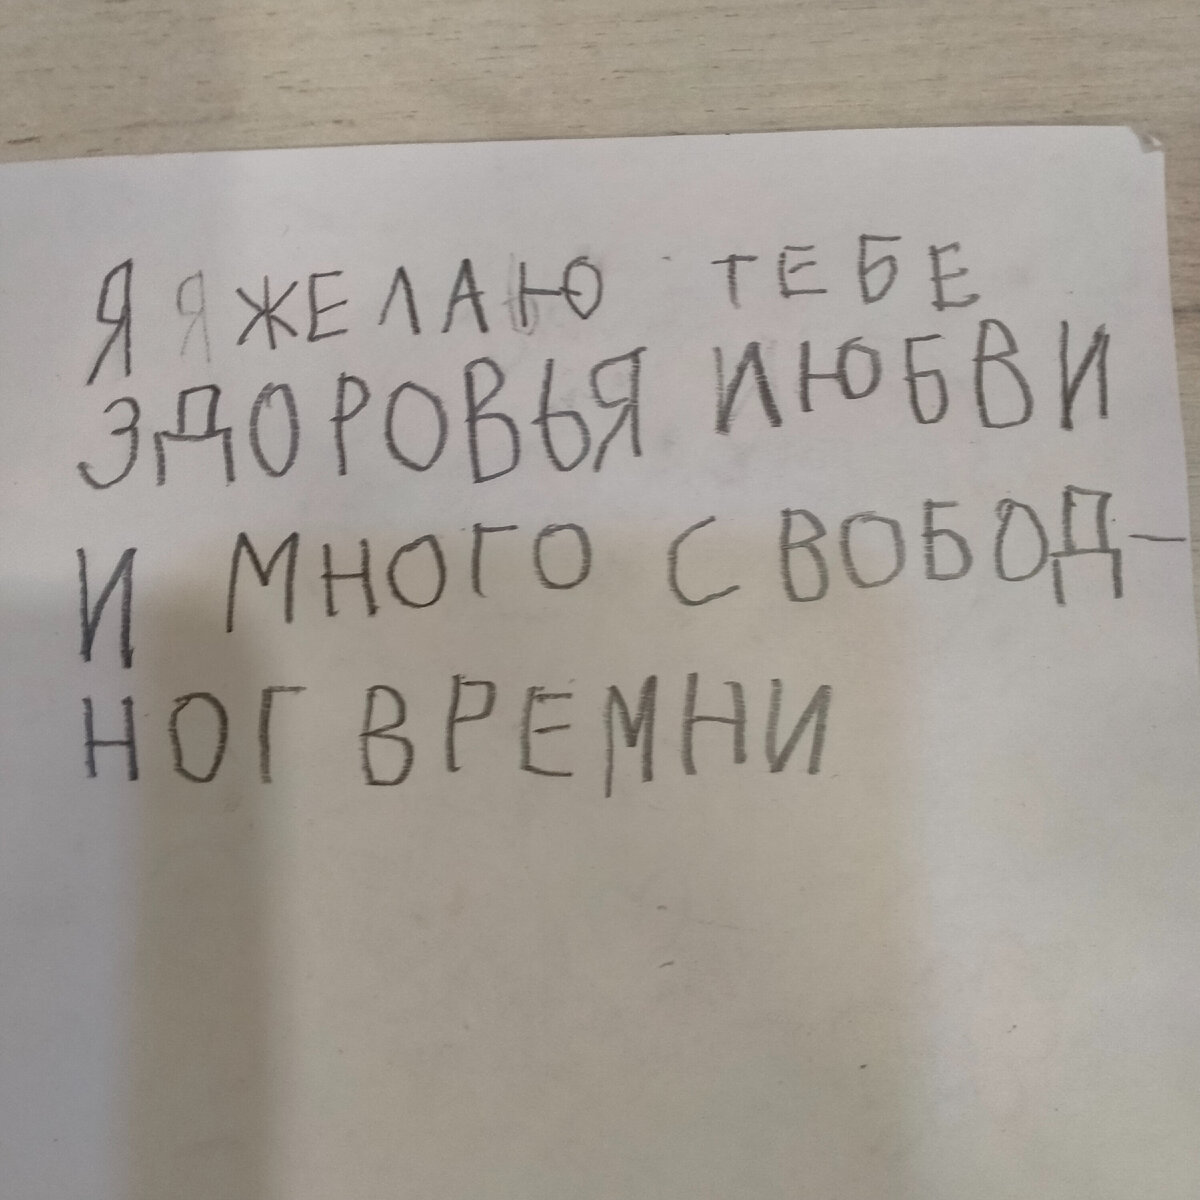 Я Я ЖЕЛАЮ ТЕБЕ
ЗДОРОВЬЯ ИЮБВИ
И МНОГО СВОБОД-
НОГ ВРЕМНИ